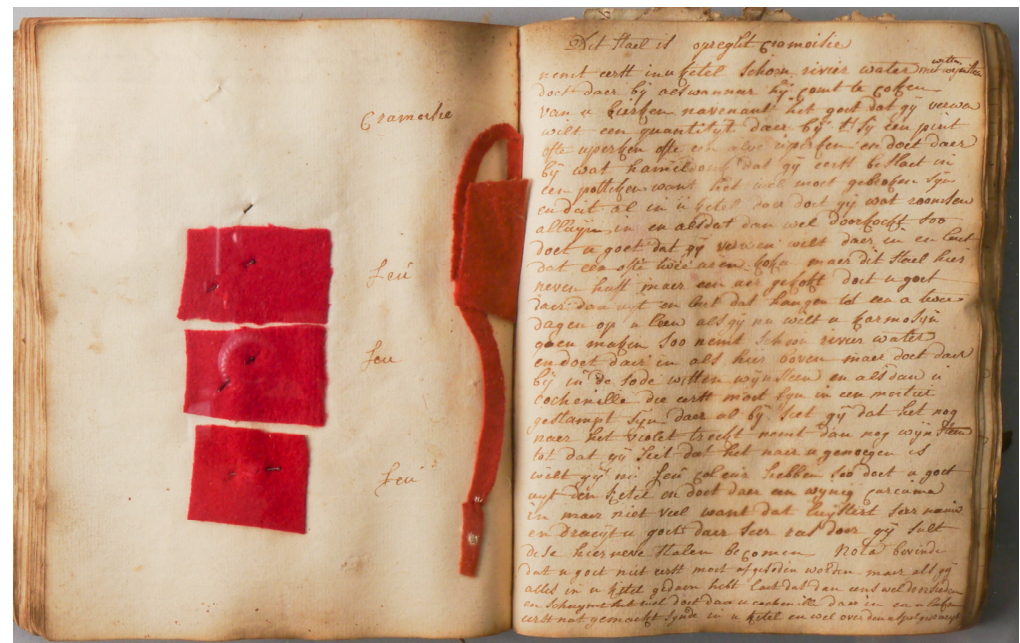 Cramoisie
feu
feu
feu
Dit stael is opreght cramoisie
nemt erst in u ketel schoon rivier water met witten wynsteen
doet daer by als wanneer hy comt te coken
van u navenant het goet dat gy verwen
wilt een quantityt daer by t sy een pint
ofte ofte een alve en doet daer
by wat dat gy eerst beslaet in
een potteken want het wel moet gebroken syn
en doet al in u ketel dan doet gy wat roomsen
alluyn in en als dat dan wel doorkockt soo
doet u goet dat gy verwen wilt daer in en laet
dat een ofte twee uren koken maer dit stael hier
neven heeft maer een uer gekokt doet u goet
daer dan uyt en laet dat hangen tot een a twee
dagen op u leen als gy nu wilt u karmosyn
gaen maken soo nemt schoon rivier water
en doet daer in als hier boven maer doet daer
by in de sode witten wynsteen en als dan u
cochenille die erst moet syn in een mortier
gestampt syn daer al by siet gy dat het nog
naer het violet treckt nemt dan nog wynsteen
tot dat gy siet dat het naer u genoegen is
wilt gy nu feu coleur hebben soo doet u goet
uyt den ketel en doet daer een wynig curcuma
in maer niet vel want dat luystert seer nauw
en draeyt u goet daer seer ras door gy sult
dese hier neve stalen becomen Nota bevinde
dat u goet niet erst moet afgesoden worden maer als gy
alles in u ketel gedaen hebt laet dat dan eens wel doorsieden
en schuymt het wel doet dan u cochenille daer in en u laken
erst nat gemaekt synde in u ketel en wel over den